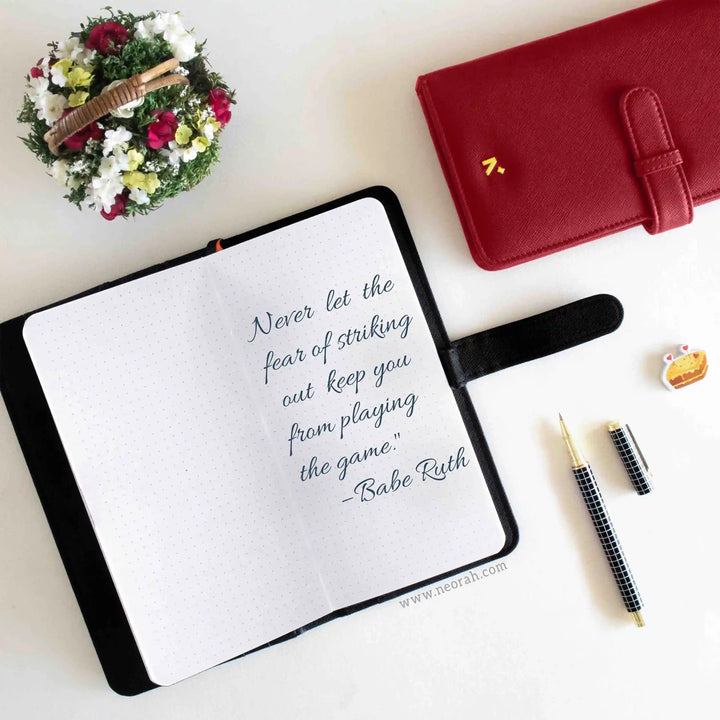 Never let the
fear of striking
out keep you
from playing
the game."
–Babe Ruth
www.neorah.com